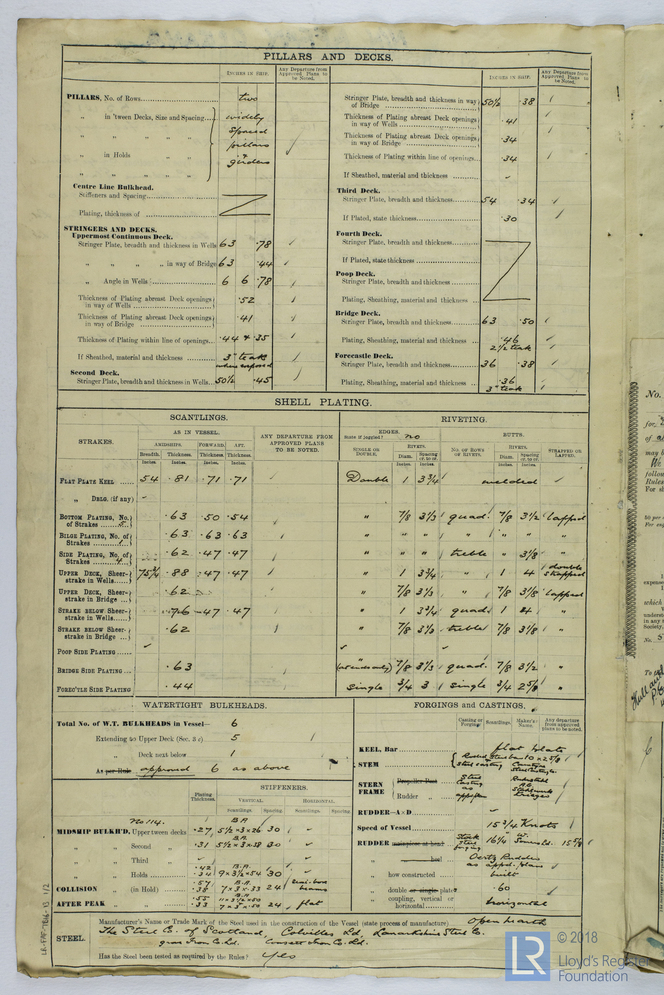 PILLARS AND DECKS.
INCHES IN SHIP.
Any Departure from Approved Plans to be Noted.
PILLARS, No. of Rows two
„ in 'tween Decks, Size and Spacing widely
„ „ „ „ spaced
pillars
„ in Holds „ „ & girders
„ „ „ „
Centre Line Bulkhead.
Stiffeners and Spacing
Plating, thickness of
STRINGERS AND DECKS.
Uppermost Continuous Deck.
Stringer Plate, breadth and thickness in Wells 63 .78
„ „ „ „ in way of Bridge 63 .44
„ Angle in Wells 6 6 .78
Thickness of Plating abreast Deck openings in way of Wells .52
Thickness of Plating abreast Deck openings in way of Bridge .41
Thickness of Plating within line of openings .44 & .35
If Sheathed, material and thickness 3" teak where exposed
Second Deck.
Stringer Plate, breadth and thickness in Wells 50½ .45
INCHES IN SHIP.
Any Departure from Approved Plans to be Noted.
Stringer Plate, breadth and thickness in way of Bridge 50½ .38
Thickness of Plating abreast Deck openings in way of Wells .41
Thickness of Plating abreast Deck openings in way of Bridge .34
Thickness of Plating within line of openings .34
If Sheathed, material and thickness
Third Deck.
Stringer Plate, breadth and thickness 54 .34
If Plated, state thickness .30
Fourth Deck.
Stringer Plate, breadth and thickness
If Plated, state thickness
Poop Deck.
Stringer Plate, breadth and thickness
Plating, Sheathing, material and thickness
Bridge Deck.
Stringer Plate, breadth and thickness 63 .50
Plating, Sheathing, material and thickness .46 2½ teak
Forecastle Deck.
Stringer Plate, breadth and thickness 36 .38
Plating, Sheathing, material and thickness .36 3" teak
SHELL PLATING.
SCANTLINGS.
RIVETING.
STRAKES.
AS IN VESSEL.
AMIDSHIPS. FORWARD. AFT.
Breadth. Thickness. Thickness. Thickness.
Inches. Inches. Inches. Inches.
ANY DEPARTURE FROM APPROVED PLANS TO BE NOTED.
EDGES.
State if joggled? no
SINGLE OR DOUBLE.
RIVETS.
Diam. Spacing cr. to cr.
Inches. Inches.
BUTTS.
No. OF ROWS OF RIVETS.
RIVETS.
Diam. Spacing cr. to cr.
Inches. Inches.
STRAPPED OR LAPPED.
FLAT PLATE KEEL 54 .81 .71 .71 Double 1 3¾ welded
„ DBLG. (if any)
BOTTOM PLATING, No. of Strakes 5 .63 .50 .54 „ 7/8 3½ quad. 7/8 3½ lapped
BILGE PLATING, No. of Strakes 1 .63 .63 .63 „ „ „ „ „ „ „
SIDE PLATING, No. of Strakes 4 .62 .47 .47 „ „ „ treble „ 3⅛ „
UPPER DECK, Sheerstrake in Wells .88 .47 .47 „ 1 3¾ „ 1 4 double strapped
UPPER DECK, Sheerstrake in Bridge .62 „ 7/8 „ 7/8 3⅛ lapped
STRAKE BELOW Sheerstrake in Wells .76 .47 .47 „ 1 3¾ quad. 1 4 „
STRAKE BELOW Sheerstrake in Bridge .62 „ 7/8 treble 7/8 3⅛ „
POOP SIDE PLATING
BRIDGE SIDE PLATING .63 7/8 quad. 7/8 3½ „
FORE'C'TLE SIDE PLATING .44 Single ¾ 3 Single ¾ 2⅝ „
WATERTIGHT BULKHEADS.
Total No. of W.T. BULKHEADS in Vessel— 6
Extending to Upper Deck (Sec. 3 c) 5
„ Deck next below 1
As per Rule approved 6 as above
STIFFENERS.
Plating Thickness.
VERTICAL. HORIZONTAL.
Scantlings. Spacing. Scantlings. Spacing.
No 114.
MIDSHIP BULKH'D, Upper tween decks .27 B.A. 5½ x 3 x .26 30
„ „ Second „ .31 B.A. 5½ x 3 x .38 30
„ „ Third „
„ „ Holds .42 .34 B.A. 9 x 3½ x .54 30
COLLISION „ (in Hold) .57 .35 B.A. 7 x 3 x .33 24 beams
AFTER PEAK „ „ .55 .33 B.A. 24 flat
FORGINGS and CASTINGS.
Casting or Forging. Scantlings. Maker's Name. Any departure from approved plans to be noted.
KEEL, Bar flat plate
STEM Rolled Steel bar 10 x 2⅝
Steel casting
STERN FRAME Propeller Post Steel casting as approved
Rudder „
RUDDER—A × D
Speed of Vessel 15¾ Knots
RUDDER mainpiece at head forging 16¼
„ „ heel Oertz Rudder as appd. plans
„ how constructed built
„ double or single plate .60
„ coupling, vertical or horizontal horizontal
STEEL. Manufacturer's Name or Trade Mark of the Steel used in the construction of the Vessel (state process of manufacture) Open hearth
The Steel Co. of Scotland, Colvilles Ld, Lanarkshire Steel Co.
Iron Co. Ld. Consett Iron Co. Ld.
Has the Steel been tested as required by the Rules? Yes
LR
© 2018
Lloyd's Register
Foundation